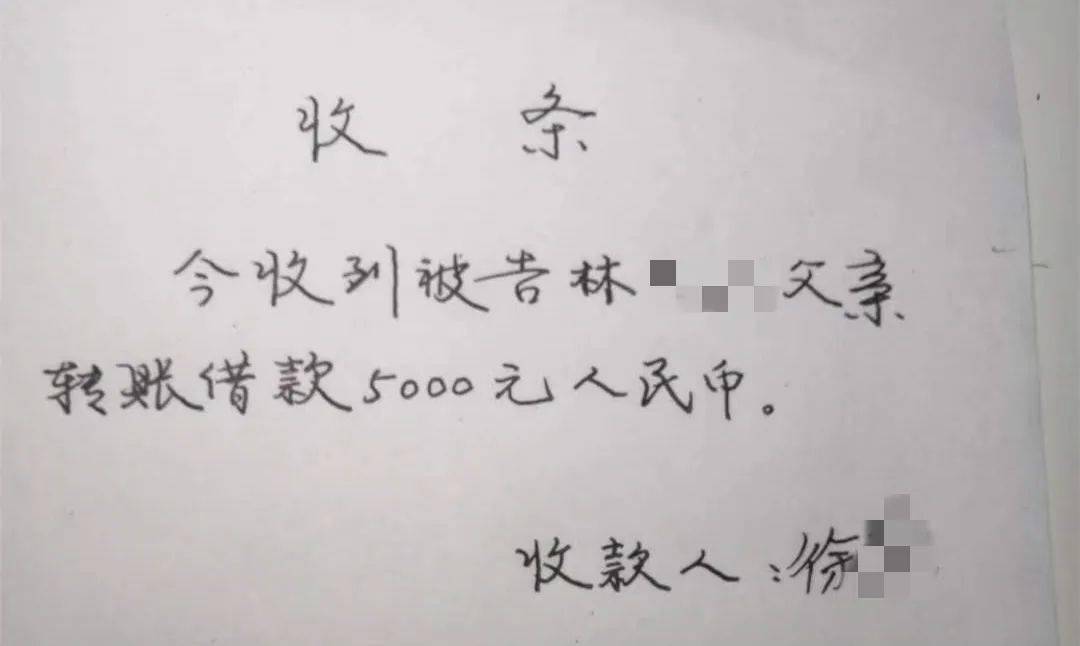 收 条
今收到被告林 父亲
转账借款5000元人民币。
收款人:徐